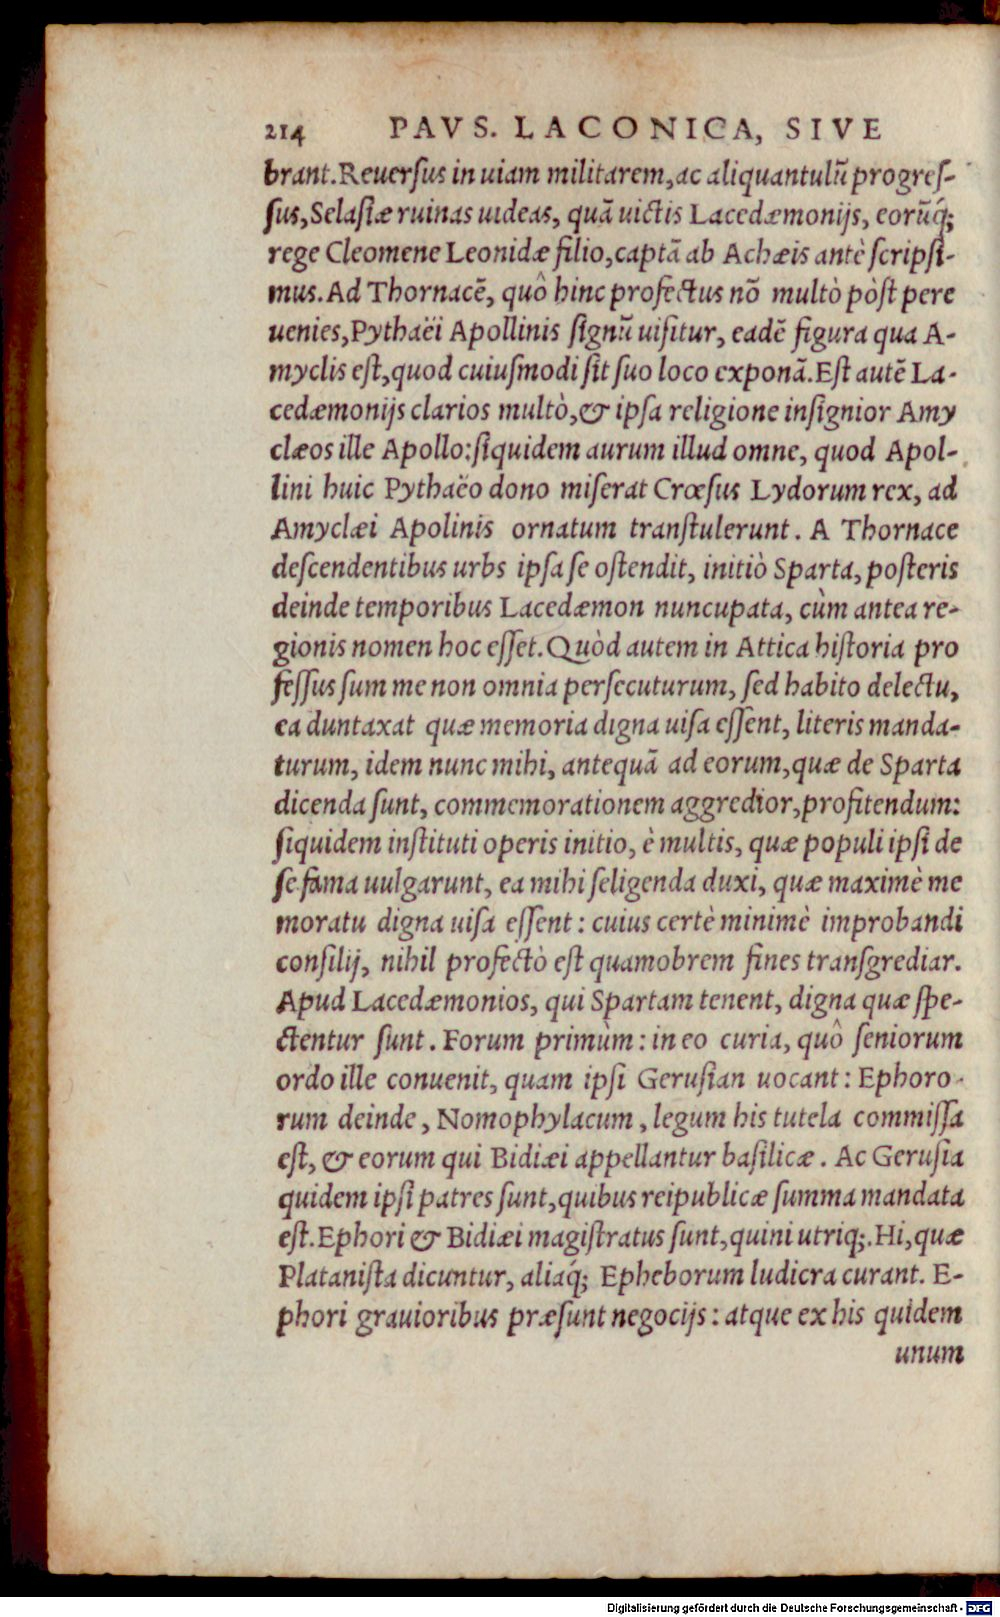 214 PAVS. LACONICA, SIVE
brant. Reuerſus in uiam militarem, ac aliquantulũ progreſ-
ſus, Selaſiæ ruinas uideas, quã uictis Lacedæmonijs, eorũq́;
rege Cleomene Leonidæ filio, captã ab Achæis antè ſcripſi-
mus. Ad Thornacẽ, quô hinc profectus nõ multò pòſt pere
uenies, Pythaëi Apollinis ſignũ uiſitur, eadẽ figura qua A-
myclis eſt, quod cuiuſmodi ſit ſuo loco exponã. Eſt autẽ La-
cedæmonijs clarios multò, & ipſa religione inſignior Amy
clæos ille Apollo: ſiquidem aurum illud omne, quod Apol-
lini huic Pythaëo dono miſerat Crœſus Lydorum rex, ad
Amyclæi Apolinis ornatum tranſtulerunt. A Thornace
deſcendentibus urbs ipſa ſe oſtendit, initiò Sparta, poſteris
deinde temporibus Lacedæmon nuncupata, cùm antea re-
gionis nomen hoc eſſet. Quòd autem in Attica hiſtoria pro
feſſus ſum me non omnia perſecuturum, ſed habito delectu,
ea duntaxat quæ memoria digna uiſa eſſent, literis manda-
turum, idem nunc mihi, antequã ad eorum, quæ de Sparta
dicenda ſunt, commemorationem aggredior, profitendum:
ſiquidem inſtituti operis initio, è multis, quæ populi ipſi de
ſe fama uulgarunt, ea mihi ſeligenda duxi, quæ maximè me
moratu digna uiſa eſſent: cuius certè minimè improbandi
conſilij, nihil profectò eſt quamobrem fines tranſgrediar.
Apud Lacedæmonios, qui Spartam tenent, digna quæ ſpe-
ctentur ſunt. Forum primùm: in eo curia, quô ſeniorum
ordo ille conuenit, quam ipſi Geruſian uocant: Ephoro-
rum deinde, Nomophylacum, legum his tutela commiſſa
eſt, & eorum qui Bidiæi appellantur baſilicæ. Ac Geruſia
quidem ipſi patres ſunt, quibus reipublicæ ſumma mandata
eſt. Ephori & Bidiæi magiſtratus ſunt, quini utriq;. Hi, quæ
Plataniſta dicuntur, aliaq́; Epheborum ludicra curant. E-
phori grauioribus præſunt negocijs: atque ex his quidem
unum
Digitalisierung gefördert durch die Deutsche Forschungsgemeinschaft - DFG